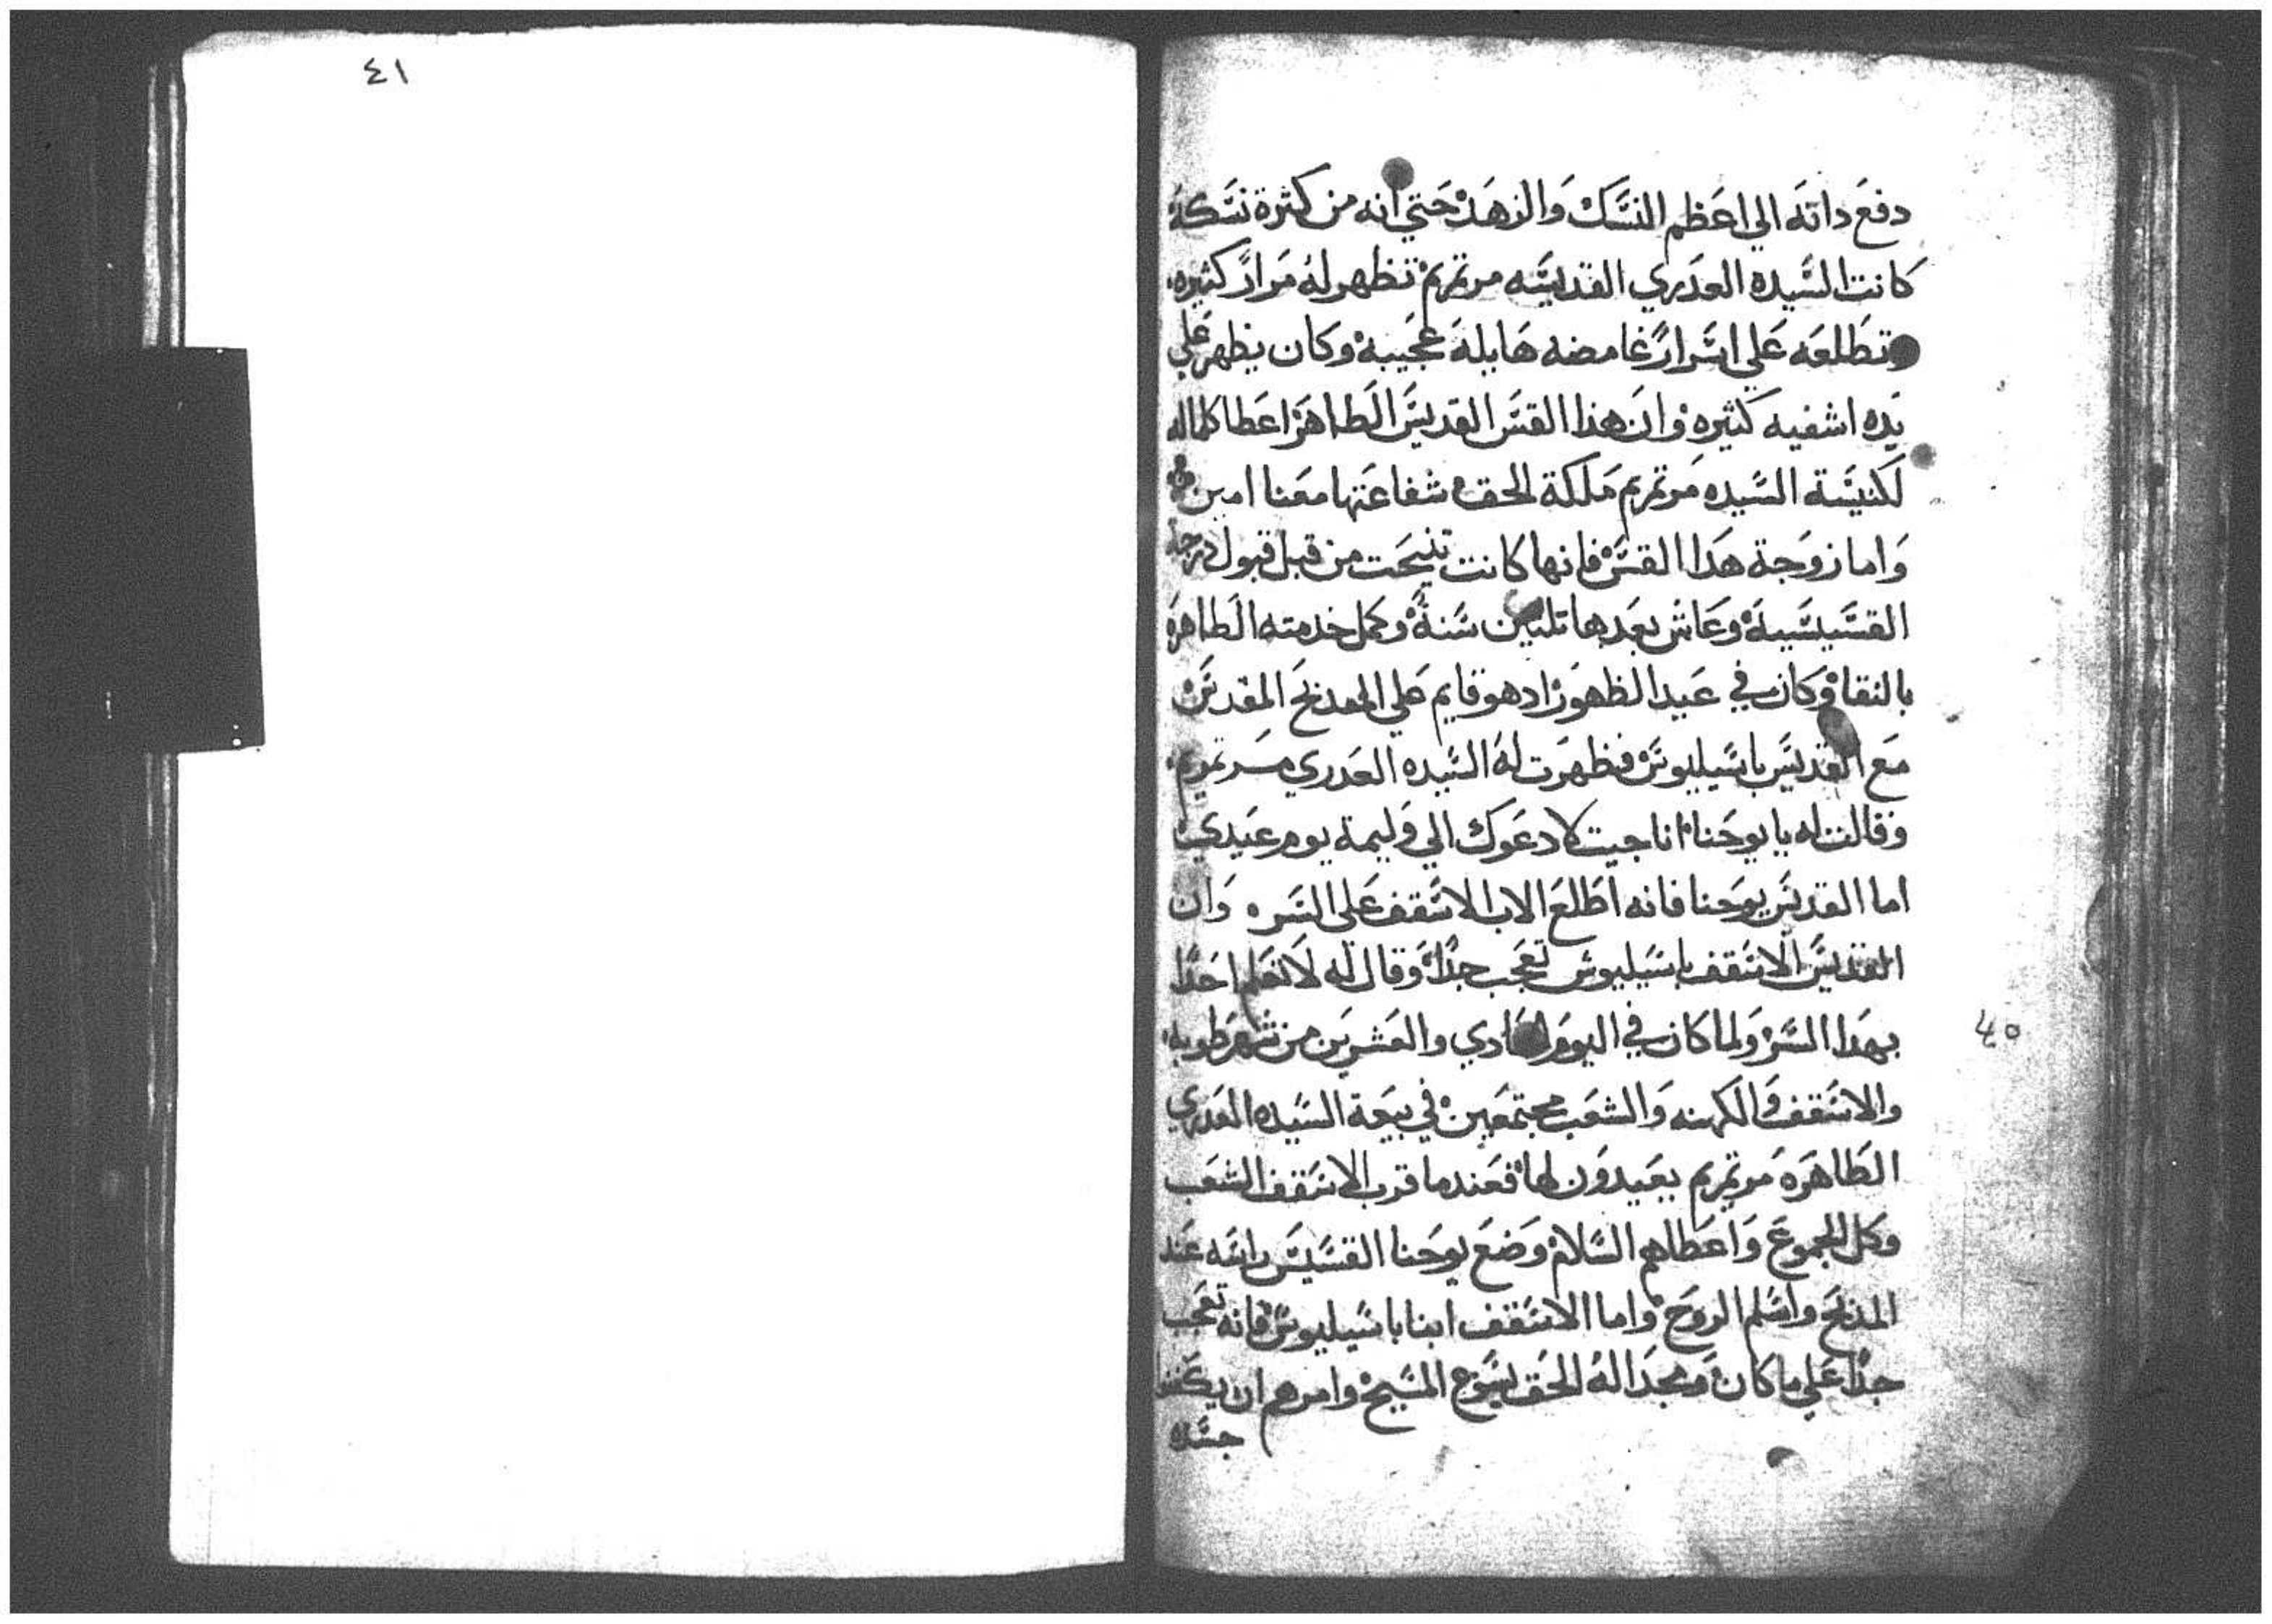 دفع داته الي اعظم النسك والزهد حتي انه من كثرة نسكه
كانت السيده العدري القديسه مرتمريم تظهر له مرار كثيره
وتطلعه علي اسرار غامضه هايله عجيبة وكان يظهر علي
يده اشفيه كثيره وان هذا القس القديس الطاهر اعطا كلما له
لكنيسة السيده مرتمريم ملكة الحق شفاعتها معنا امين
واما زوجة هدا القس فانها كانت تنيحت من قبل قبول درجة
القسيسية وعاش بعدها تلتين سنة وكمل خدمته الطاهره
بالنقاوه كان في عيد الظهور اد هو قايم علي المدبح المقدس
مع القديس باسيليوس فظهرت له السيده العدري مرتمريم
وقالت له يا يوحنا انا جيت لادعوك الي وليمة يوم عيدي
اما القديس يوحنا فانه اطلع الاب الاسقف على السر وان
القديس الاسقف باسيليوس تعجب جدا وقال له لا تعلم احدا
بهدا السر ولما كان في اليوم الحادي والعشرين من شهر طوبه
والاسقف والكهنه والشعب مجتمعين في بيعة السيده العدري
الطاهره مرتمريم يعيدون لها فعندما قرب الاسقف الشعب
وكل الجموع واعطاهم السلام وضع يوحنا القسيس راسه عند
المدبح واسلم الروح واما الاسقف ابنا باسيليوس فانه تعجب
جدا علي ما كان ومجد اله الحق يسوع المسيح وامرهم ان يكفنوا
جسده
٤٠
٤١